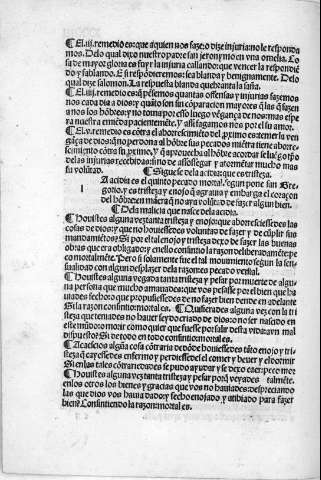 ¶ El .iij. remedio es: que a quien nos faze o dize injuria no le responda
mos. Delo qual dize nuestro padre san jeronymo en vna omelia. Co
sa de mayor gloria es fuyr la injuria callando: que vencer la respondiē
do y fablando. E si respōdieremos: sea blanda y benignamente. Delo
qual dize salomon. La respuesta blanda quebranta la saña.
¶ El .iiij. remedio es q̄ pēsemos quantas offensas y injurias fazemos
nos cada dia a dios: y q̄ nito son sin cōparacion mayores q̄ las q̄ fazen
a nos los hōbres: y no tomar por esso luego vēgança de nos: mas espe
ra nuestra emiēda paciētemēte. y assi fagamos nos por el su amor.
¶ El .v. remedio es cōtra el aborrescimiēto del proximo es temer la ven
gāça de dios: q̄ no perdona al hōbre sus pecados miētra tiene aborre
scimiento cōtra su primo.
de las injurias recebidas: no se assossiegar y acometer mucho mas
su volūtad. ¶ Siguese dela acidia: que es tristeza.
Acidia es el quinto pecado mortal. segun pone san Gre
gorio, y es tristeza y enojo q̄ agrauia y embarga el coraçon
del hōbre en manera q̄ no aya volūtad de fazer algun bien.
¶ Dela malicia que nasce dela acidia.
¶ Houistes alguna vez tanta tristeza y enojo: que aborresciessedes las
cosas de dios: y que no houiessedes voluntad de fazer y de cūplir sus
mandamiētos: Si por el tal enojo y tristeza dexo de fazer las buenas
obras que era obligado: y en ello consintio la razon deliberadamēte: pe
co mortalmēte. Pero si solamente fue el tal mouimiento segun la sen
sualidad con algun desplazer dela razon es pecado venial.
¶ Houistes alguna vez tanta tristeza y pesar por muerte de algu
na persona que mucho amauades: que vos pesasse por el bien que ha
uiades fecho: o que propusiessedes de no fazer bien dende en adelante
Si la razon consintio: mortal es. ¶ Quisierades alguna vez con la tri
steza que teniades no hauer seydo criado de dios: o no ser nascido en
este mūdo: o morir como quier que fuesse por salir desta vida: avn mal
dispuesto? Si de todo en todo consintio: mortal es.
¶ Acaescios algūa cosa cōtraria de dōde houiessedes tāto enojo y tri
steza q̄ cayessedes enfermo y perdiessedes el comer y beuer y el dormir
Si en las tales cōtrariedades se pudo ayudar y se dexo caer: peco mor.
¶ Houistes alguna vez tanta tristeza y pesar por q̄ veyades talmēte.
en los otros los bienes y gracias que vos no hauiades: despreciando
las que dios vos hauia dado: y fecho enojado, y atibiado para fazer
bien? Consintiendo la razon: mortal es.